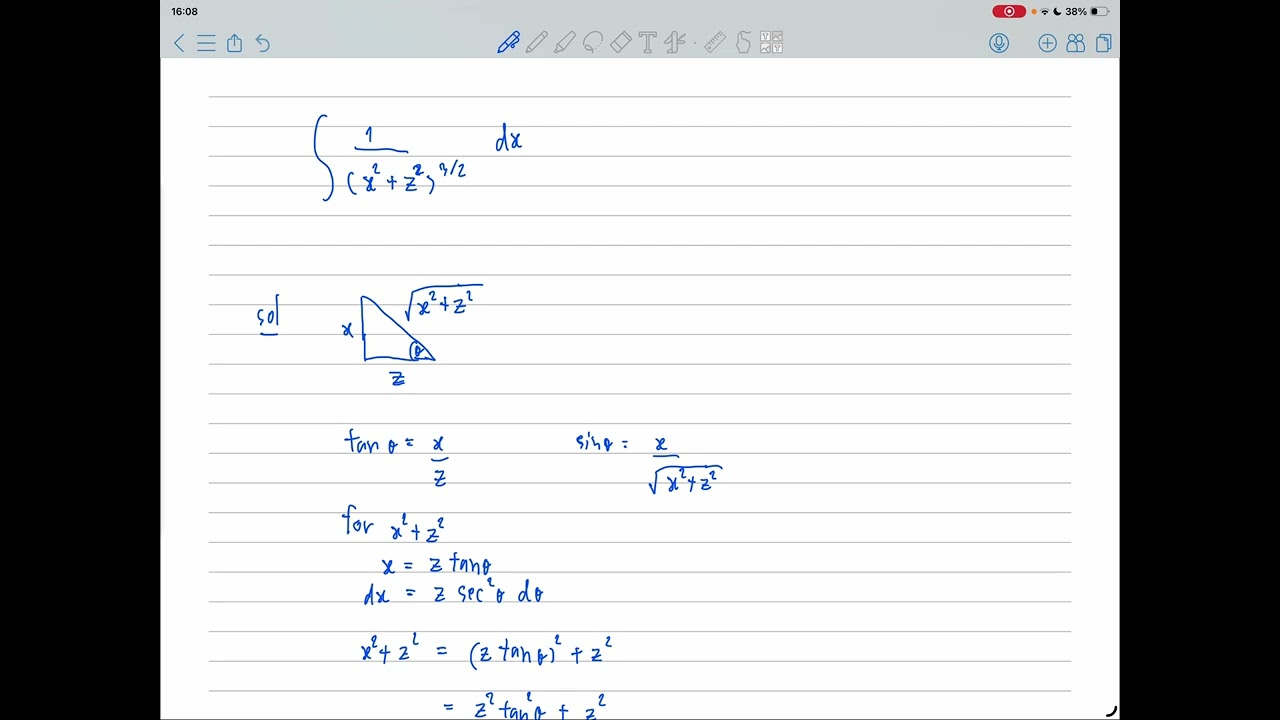 16:08 38%
T
∫ 1/(x²+z²)^3/2 dx
sol
√x²+z²
x
θ
z
tan θ = x/z sinθ = x/√x²+z²
for x²+z²
x = z tanθ
dx = z sec²θ dθ
x²+z² = (z tanθ)² + z²
= z² tan²θ + z²